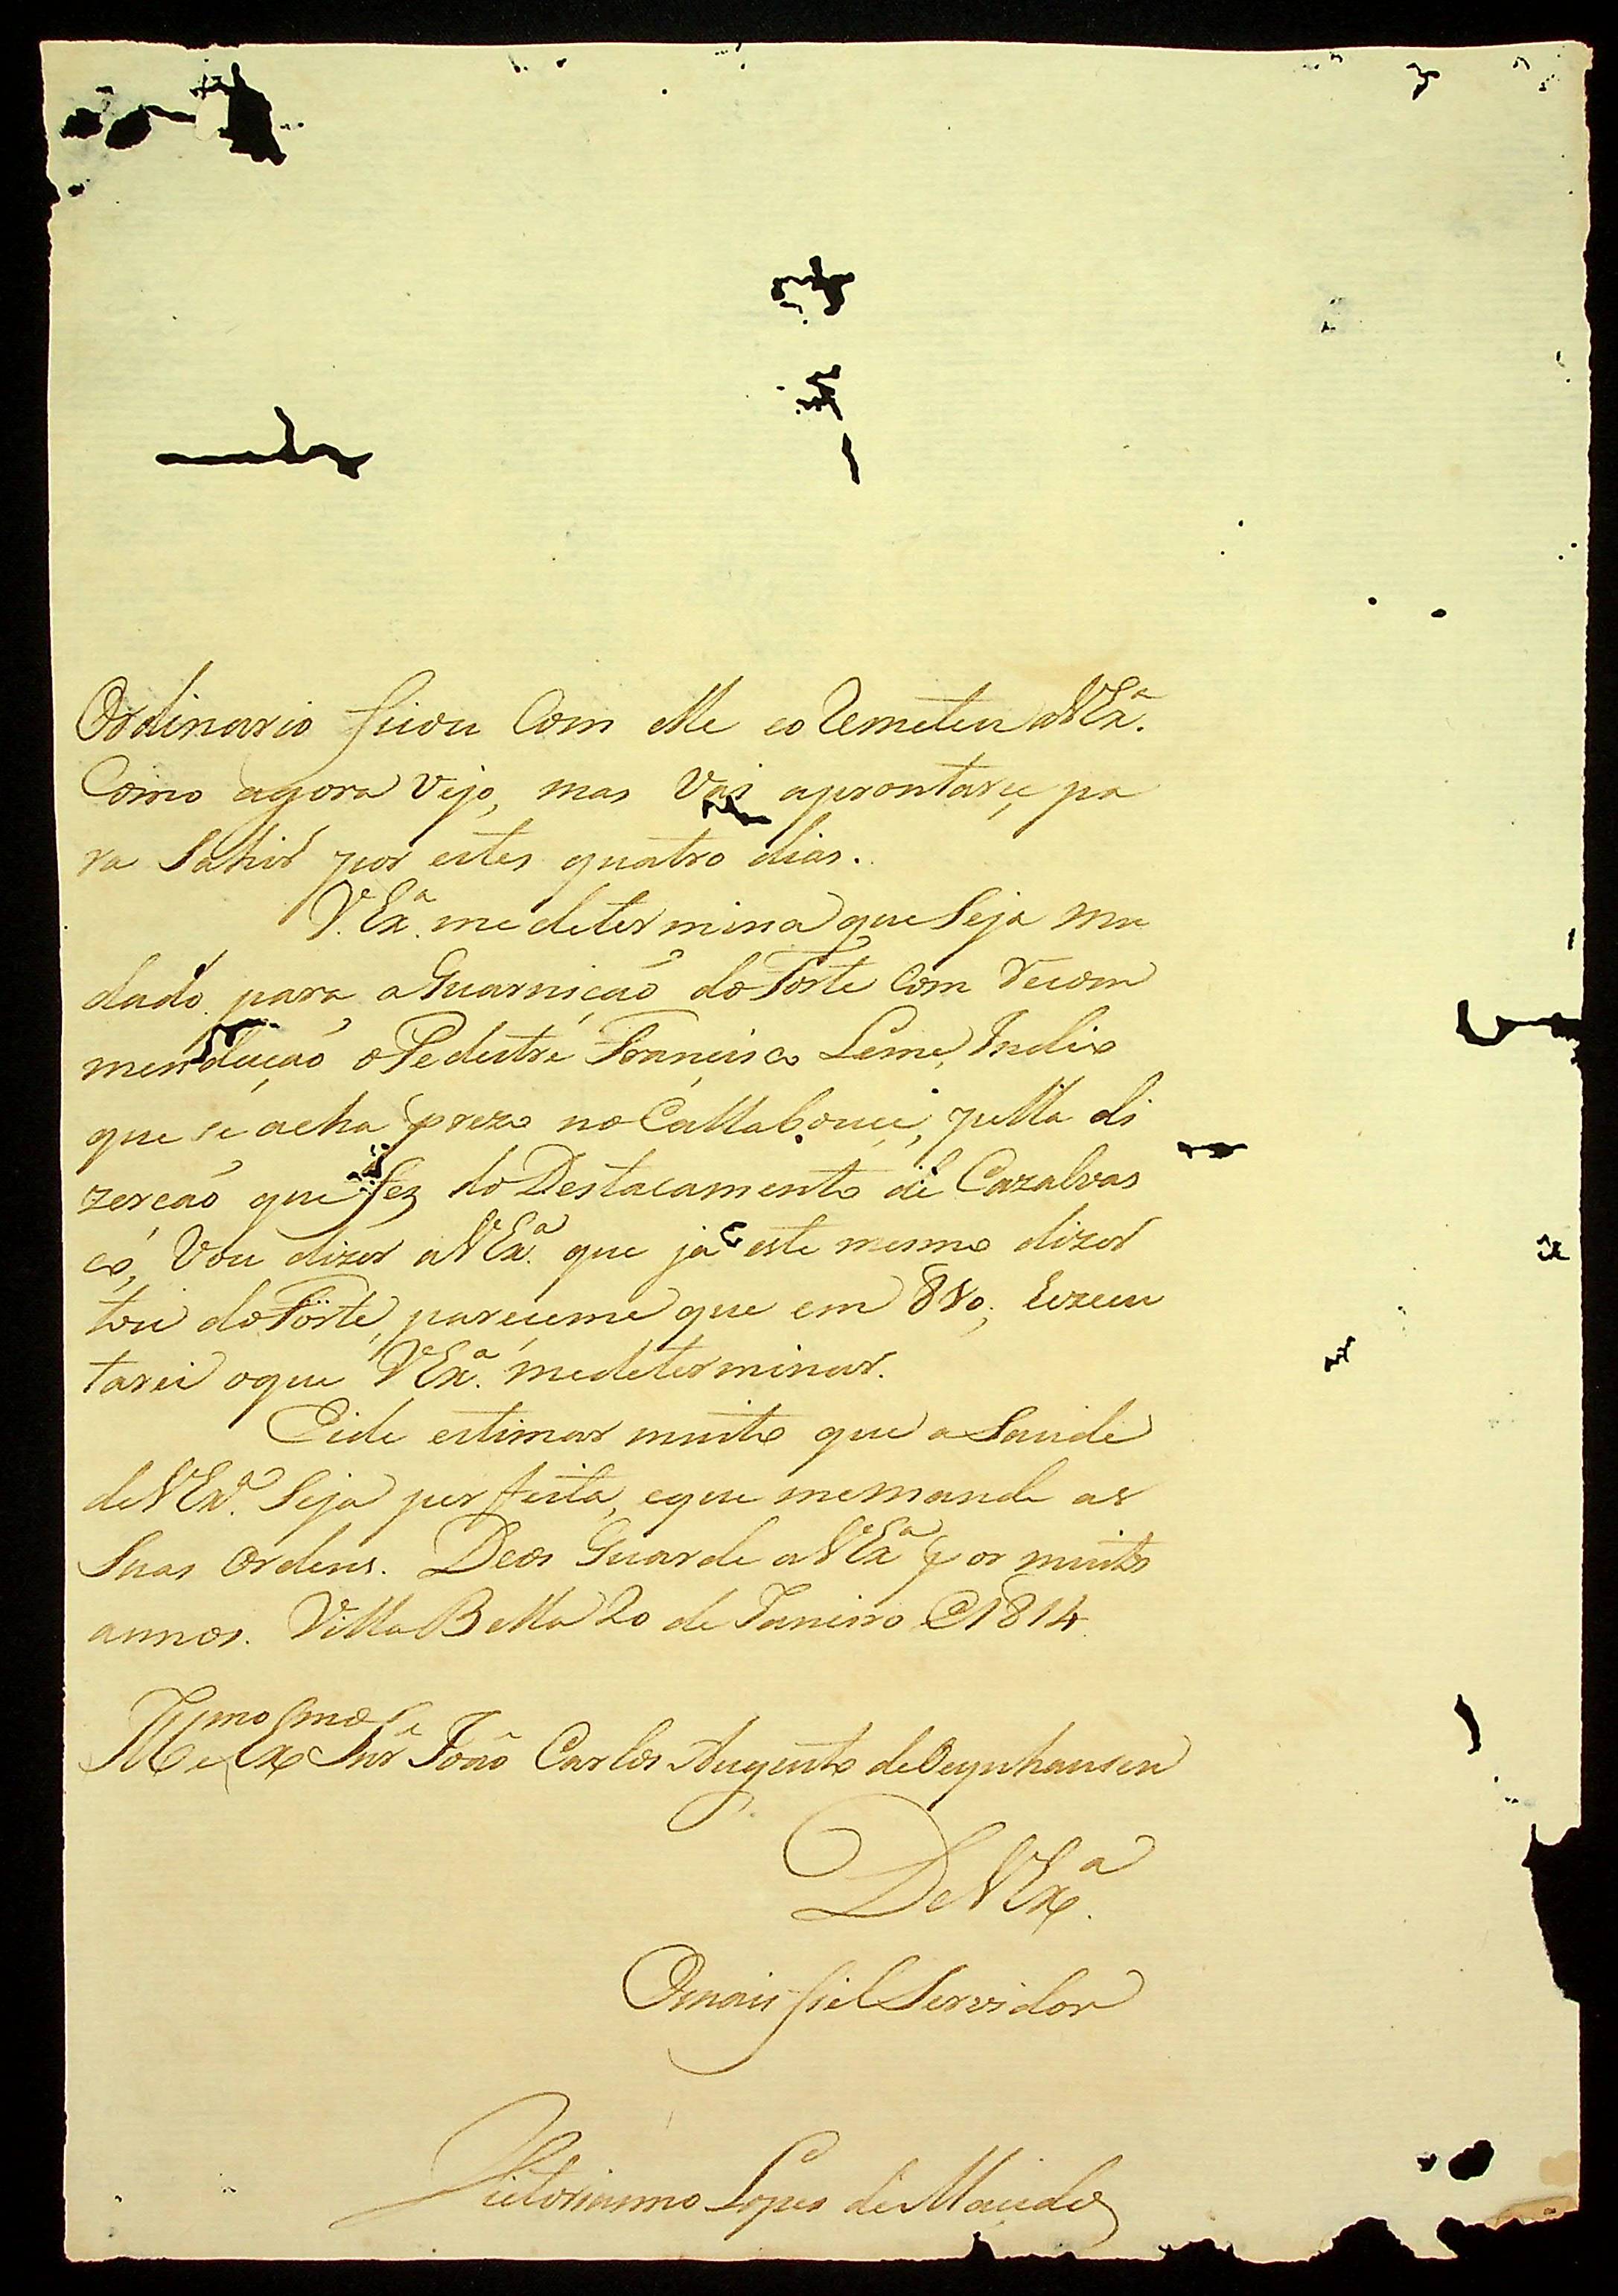 Ordinario ficou Com elle eo Remeteu aVExª.
Como agora vejo, mas Vai aprontarçe pa
ra Sahir por estes quatro dias.
V.Exª. me determina que Seja mu
dado para aGuarnição do Forte com recom
mendação oPedestre Francisco Leme, Indio
que se acha prezo no Callabouce, pella di
zercão que fez do Destacamento de Cazalvas
co, Vou dizer aVExª. que já este mesmo dizer
tou do Forte, pareceme que em 810; Exzecu
tarei oque VExª. medeterminar.
Eide estimar muito que a Saude
deVExª. Seja perfeita, eque memande as
Suas Ordens. Deos Guarde aVExª por muitos
annos. Villa Bella 20 de Janeiro @1814
Illmo e Exmo Snr João Carlos Augusto deOeynhausen
DeVExª.
Omais fiel Servidor
Victorianno Lopes de Macedo